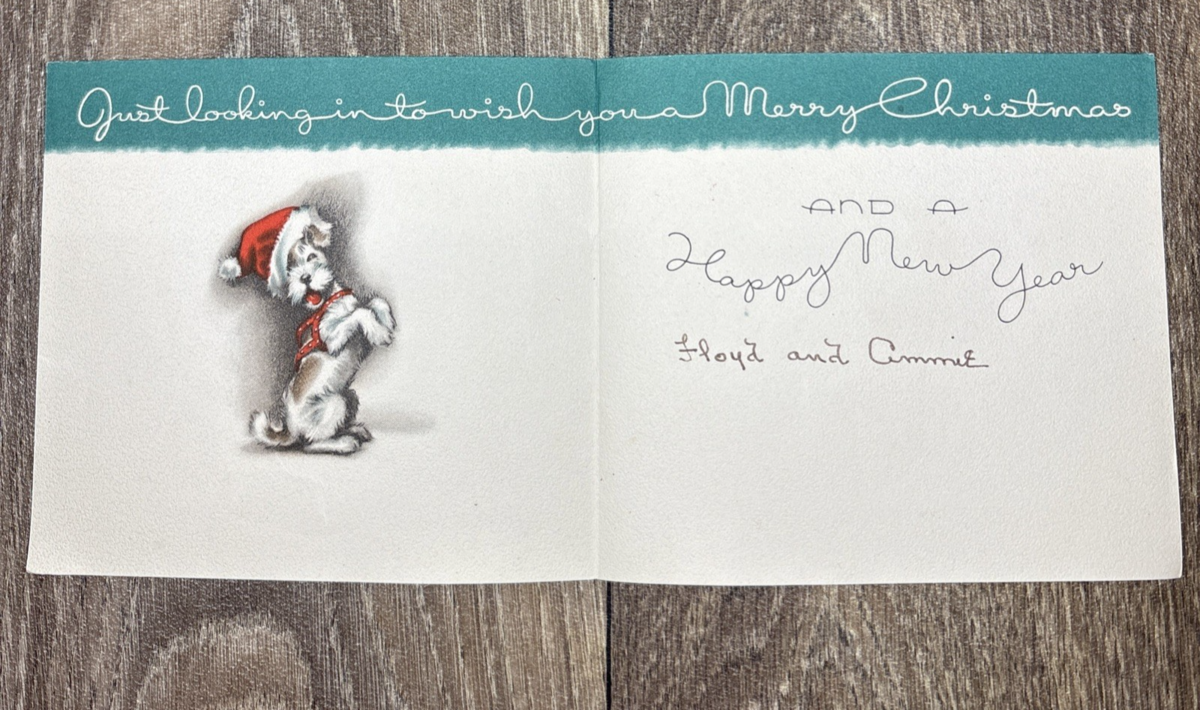 Just looking in to wish you a Merry Christmas
AND A
Happy New Year
Floyd and